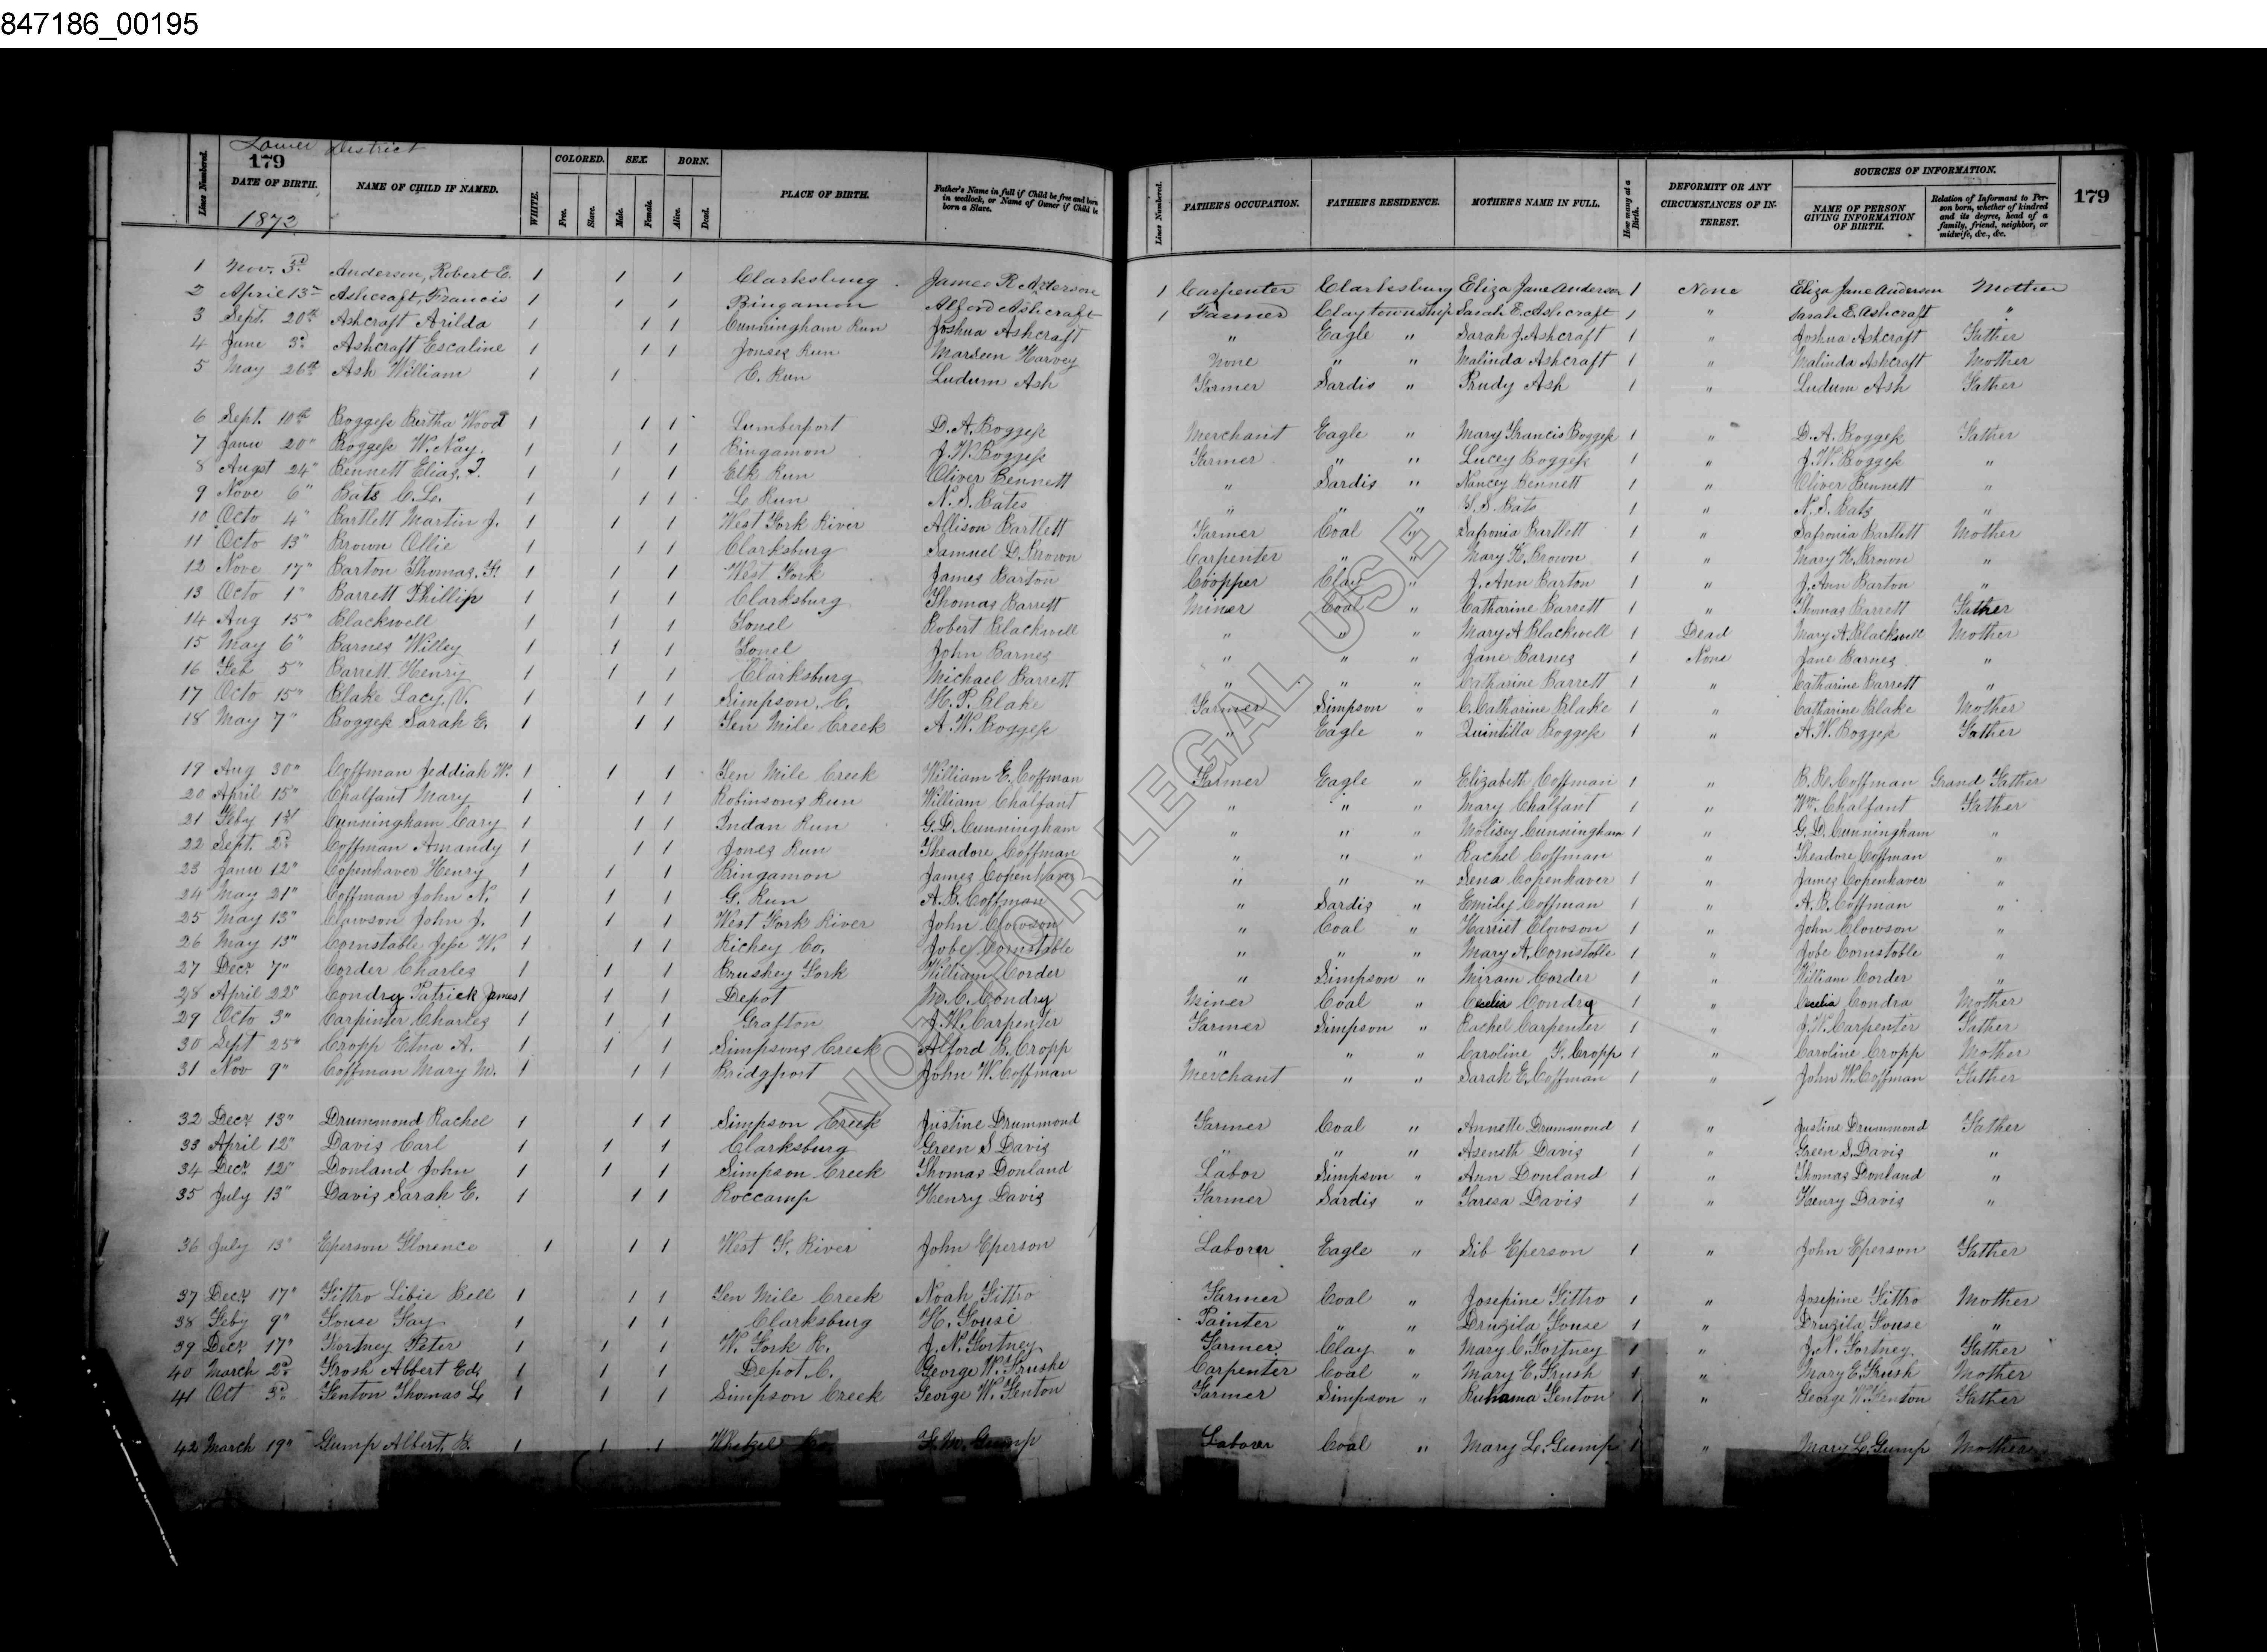 847186_00195
Lower District
179
Lines Numbered.
DATE OF BIRTH.
1872
NAME OF CHILD IF NAMED.
WHITE.
COLORED.
Free.
Slave.
SEX.
Male.
Female.
BORN.
Alive.
Dead.
PLACE OF BIRTH.
Father's Name in full if Child be free and born in wedlock, or Name of Owner if Child be born a Slave.
Lines Numbered.
FATHER'S OCCUPATION.
FATHER'S RESIDENCE.
MOTHER'S NAME IN FULL.
How many at a Birth.
DEFORMITY OR ANY CIRCUMSTANCES OF INTEREST.
SOURCES OF INFORMATION.
NAME OF PERSON GIVING INFORMATION OF BIRTH.
Relation of Informant to Person born, whether of kindred and its degree, head of a family, friend, neighbor, or midwife, &c., &c.
179
1 Nov. 3d Anderson, Robert E. 1 1 1 Clarksburg James R Anderson 1 Carpenter Clarksburg Eliza Jane Anderson 1 None Eliza Jane Anderson Mother
2 April 13th Ashcraft, Francis 1 1 1 Bingamon Alford Ashcraft 1 Farmer Clay township Sarah E. Ashcraft 1 " Sarah E. Ashcraft "
3 Sept. 20th Ashcraft Arilda 1 1 1 Cunningham Run Joshua Ashcraft " Eagle " Sarah J. Ashcraft 1 " Joshua Ashcraft Father
4 June 3d Ashcraft Escaline 1 1 1 Jonses Run Harvey None " " Malinda Ashcraft 1 " Malinda Ashcraft Mother
5 May 26th Ash William 1 1 C. Run Ludum Ash Farmer Sardis " Prudy Ash 1 " Ludum Ash Father
6 Sept. 10th Boggess Burtha Wood 1 1 1 Lumberport D. A. Boggess Merchant Eagle " Mary Francis Boggess 1 " D. A. Boggess Father
7 Janu 20" Boggess W. Nay. 1 1 1 Bingamon J. W. Boggess Farmer " " Lucey Boggess 1 " J. W. Boggess "
8 Augst 24" Bennett Elias. J. 1 1 1 Elk Run Oliver Bennett " Sardis " Nancey Bennett 1 " Oliver Bennett "
9 Nove 6" Bats C. L. 1 1 1 L. Run N. S. Bates " " " S. S. Bats 1 " N. S. Bats "
10 Octo 4" Bartlett Martin J. 1 1 1 West Fork River Allison Bartlett Farmer Coal " Safronia Bartlett 1 " Safronia Bartlett Mother
11 Octo 13" Brown Ollie 1 1 1 Clarksburg Samuel D. Brown Carpenter " " Mary K. Brown 1 " Mary K. Brown "
12 Nove 17" Barton Thomas. F. 1 1 1 West Fork James Barton Coopper Clay " J. Ann Barton 1 " J. Ann Barton "
13 Octo 1" Barrett Phillip 1 1 1 Clarksburg Thomas Barrett Miner Coal " Catharine Barrett 1 " Thomas Barrett Father
14 Aug 15" Blackwell 1 1 1 Tonel Robert Blackwell " " " Mary A Blackwell 1 Dead Mary A. Blackwell Mother
15 May 6" Barnes Willey 1 1 1 Tonel John Barnes " " " Jane Barnes 1 None Jane Barnes "
16 Feb 5" Barrett Henry 1 1 1 Clarksburg Michael Barrett " " " Catharine Barrett 1 " Catharine Barrett "
17 Octo 15" Blake Lacy. V. 1 1 1 Simpson. C. H. P. Blake Farmer Simpson " C. Catharine Blake 1 " Catharine Blake Mother
18 May 7" Boggess Sarah E. 1 1 1 Ten Mile Creek A. W. Boggess " Eagle " Quintilla Boggess 1 " A. W. Boggess Father
19 Aug 30" Coffman Jeddiah W. 1 1 1 Ten Mile Creek William E. Coffman Farmer Eagle " Elizabeth Coffman 1 " Coffman Grand Father
20 April 15" Chalfant Mary 1 1 1 Robinsons Run William Chalfant " " " Mary Chalfant 1 " Wm Chalfant Father
21 Feby 1st Cunningham Cary 1 1 1 Indan Run G. D. Cunningham " " " Molisey Cunningham 1 " G. D. Cunningham "
22 Sept. 2d Coffman Amandy 1 1 1 Jones Run Theadore Coffman " " " Rachel Coffman " Theadore Coffman "
23 Janu 12" Copenhaver Henry 1 1 1 Bingamon James Copenhaver " " " Sena Copenhaver 1 " James Copenhaver "
24 May 21" Coffman John N. 1 1 1 G. Run A. B. Coffman " Sardis " Emily Coffman 1 " A. B. Coffman "
25 May 13" Clowson John J. 1 1 1 West Fork River John Clowson " Coal " Harriet Clowson 1 " John Clowson "
26 May 13" Cornstable Jesse W. 1 1 1 Richey Co. Jobe Cornstable " " " Mary A. Cornstable 1 " Jobe Cornstable "
27 Decr 7" Corder Charles 1 1 1 Brushey Fork William Corder " Simpson " Miram Corder 1 " William Corder "
28 April 22" Condry Patrick James 1 1 1 Depot M. C. Condry Miner Coal " Cecelia Condry 1 " Cecelia Condra Mother
29 Octo 3" Carpinter Charles 1 1 1 Grafton J. W. Carpenter Farmer Simpson " Rachel Carpenter 1 " J. W. Carpenter Father
30 Sept 25" Cropp Edna A. 1 1 1 Simpsons Creek Alford B. Cropp " " " Caroline F. Cropp 1 " Caroline Cropp Mother
31 Nov 9" Coffman Mary M. 1 1 1 Bridgport John W. Coffman Merchant " " Sarah E. Coffman 1 " John W. Coffman Father
32 Decr 13" Drummond Rachel 1 1 1 Simpson Creek Justine Drummond Farmer Coal " Annette Drummond 1 " Justine Drummond Father
33 April 12" Davis Carl 1 1 1 Clarksburg Green S Davis " " " Aseneth Davis 1 " Green S. Davis "
34 Decr 12" Donland John 1 1 1 Simpson Creek Thomas Donland Labor Simpson " Ann Donland 1 " Thomas Donland "
35 July 13" Davis Sarah E. 1 1 1 Roccamp Henry Davis Farmer Sardis " Taresa Davis 1 " Henry Davis "
36 July 13" Eperson Florence 1 1 1 West F. River John Eperson Laborer Eagle " Sib Eperson 1 " John Eperson Father
37 Decr 17" Fittro Libie Bell 1 1 1 Ten Mile Creek Noah Fittro Farmer Coal " Josepine Fittro 1 " Josepine Fittro Mother
38 Feby 9" Fouse Fay 1 1 1 Clarksburg H. Fouse Painter " " Druzila Fouse 1 " Druzila Fouse "
39 Decr 17" Fortney Peter 1 1 1 W. Fork R. J. N. Fortney Farmer Clay " Mary C. Fortney 1 " J. N. Fortney Father
40 March 2d Frosh Abbert Ed. 1 1 1 Depot C. George W. Frushe Carpenter Coal " Mary E. Frush 1 " Mary E. Frush Mother
41 Oct 3d Fenton Thomas L. 1 1 1 Simpson Creek George W. Fenton Farmer Simpson " Ruhama Fenton 1 " George W. Fenton Father
42 March 19" Gump Albert, B. 1 1 1 Whetzel Co. F. M. Gump Laborer Coal " Mary L. Gump 1 " Mary L. Gump Mother
NOT FOR LEGAL USE